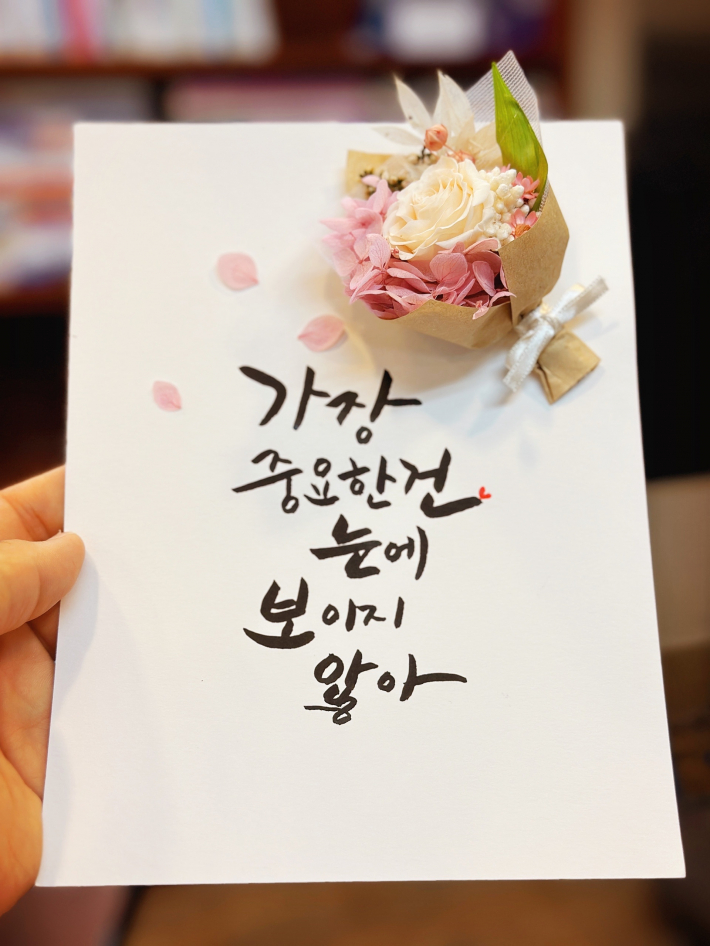 가장
중요한건
눈에
보이지
않아